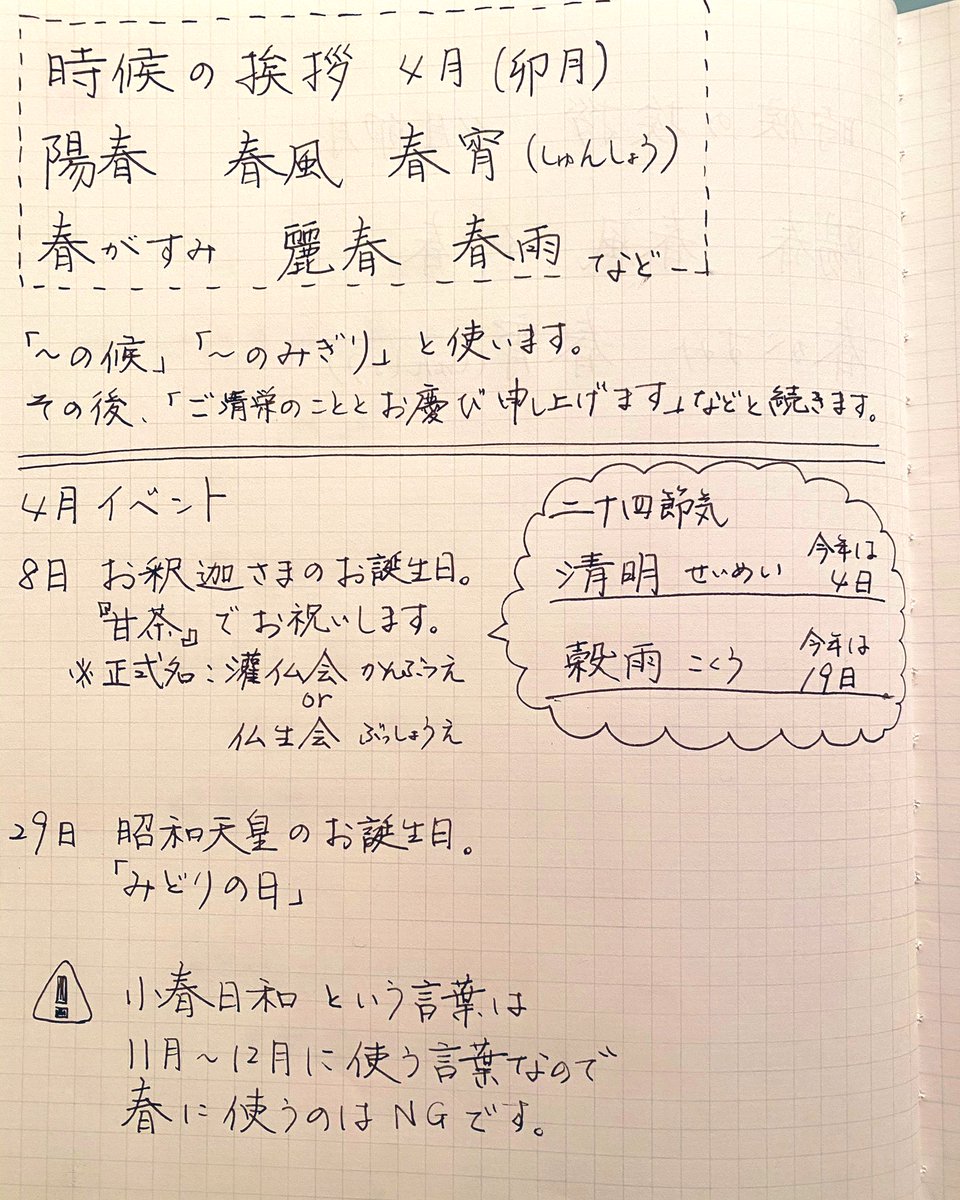 時候の挨拶 4月(卯月)
陽春 春風 春宵(しゅんしょう)
春がすみ 麗春 春雨 など
「～の候」「～のみぎり」と使います。
その後、「ご清栄のこととお慶び申し上げます」などと続きます。
4月イベント
8日 お釈迦さまのお誕生日。
『甘茶』でお祝いします。
※正式名:灌仏会 かんぶつえ
or
仏生会 ぶっしょうえ
二十四節気
清明 せいめい 今年は
4日
穀雨 こくう 今年は
19日
29日 昭和天皇のお誕生日。
「みどりの日」
小春日和という言葉は
11月～12月に使う言葉なので
春に使うのはNGです。